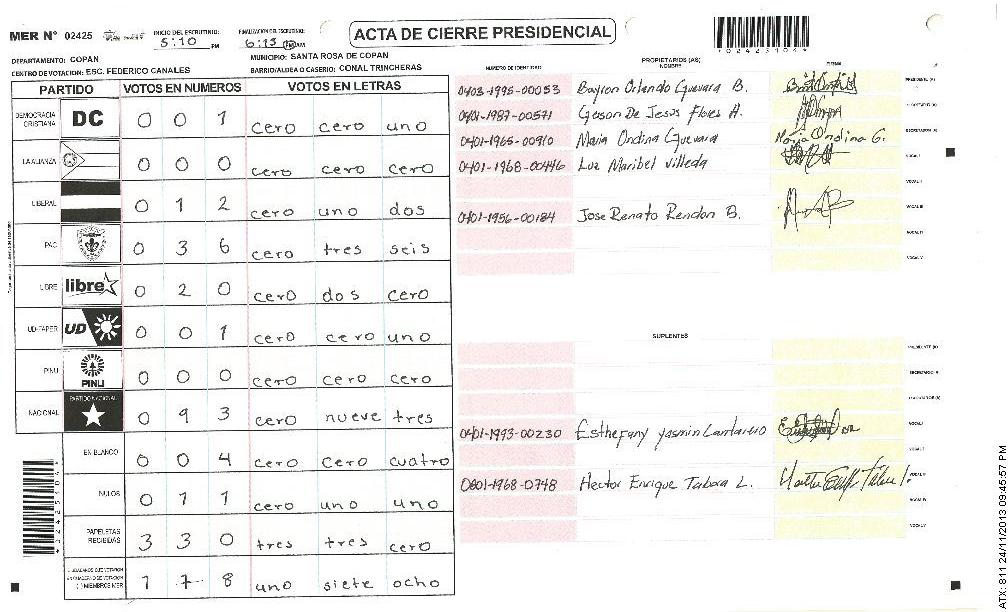 MER N° 02425
INICIO DEL ESCRUTINIO: 5:10 PM
FINALIZACION DEL ESCRUTINIO: 6:15 PM AM
ACTA DE CIERRE PRESIDENCIAL
DEPARTAMENTO: COPAN
MUNICIPIO: SANTA ROSA DE COPAN
CENTRO DE VOTACION: ESC. FEDERICO CANALES
BARRIO/ALDEA O CASERIO: CONAL TRINCHERAS
PARTIDO VOTOS EN NUMEROS VOTOS EN LETRAS
DEMOCRACIA CRISTIANA DC 0 0 1 cero cero uno
LA ALIANZA 0 0 0 cero cero cero
LIBERAL 0 1 2 cero uno dos
PAC 0 3 6 cero tres seis
LIBRE libre 0 2 0 cero dos cero
UD-FAPER UD 0 0 1 cero cero uno
PINU PINU 0 0 0 cero cero cero
NACIONAL PARTIDO NACIONAL 0 9 3 cero nueve tres
EN BLANCO 0 0 4 cero cero cuatro
NULOS 0 1 1 cero uno uno
PAPELETAS RECIBIDAS 3 3 0 tres tres cero
MIEMBROS MER 1 7 8 uno siete ocho
NUMERO DE IDENTIDAD
PROPIETARIOS (AS)
NOMBRE
FIRMA
0403-1995-00053 Bayron Orlando Guevara B. PRESIDENTE (A)
0401-1987-00571 Geson De Jesus Flores A.
0401-1965-00910 Maria Ondina Guevara Maria Ondina G. SECRETARIO (A)
0401-1968-00446 Luz Maribel Villeda VOCAL I
VOCAL II
0401-1956-00184 Jose Renato Rendon B. VOCAL III
VOCAL IV
VOCAL V
SUPLENTES
PRESIDENTE (A)
SECRETARIO (A)
0401-1993-00230 Esthefany Yasmin Lantareno VOCAL I
0801-1968-0748 Hector Enrique Tabora L.
VOCAL V
02425104
ATX: 811 24/11/2013 09:45:57 PM